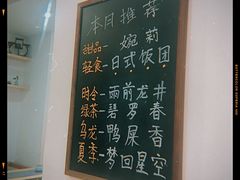 本日推荐
甜品— 婉莉
轻食—日式饭团
时令—雨前龙井
绿茶—碧罗春
乌龙—鸭屎香
夏季—梦回星空